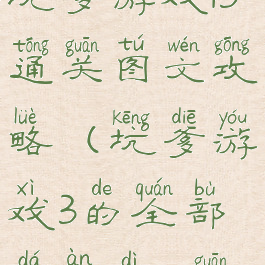 坑爹游戏13
tōng guān tú wén gōng
通关图文攻
lüè kēng diē yóu
略（坑爹游
xì de quán bù
戏3的全部
dá àn dì guān